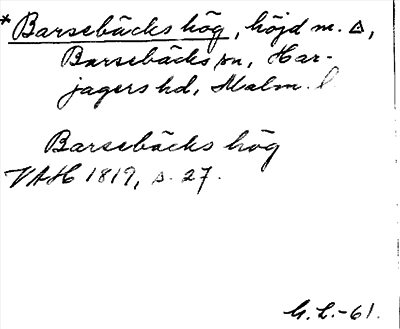 *Barsebäcks hög, höjd m. △,
Barsebäcks sn, Har-
jagers hd, Malm. l
Barsebäcks hög
VAH 1819, s. 27.
G. L. -61.